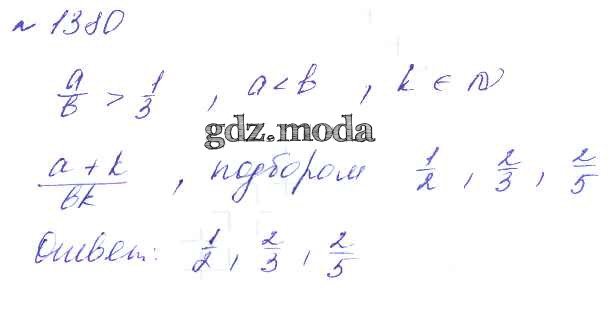 № 1380
a/b > 1/3 , a < b , k ∈ N
gdz.moda
(a + k)/(bk) , подбором 1/2 , 2/3 , 2/5
Ответ: 1/2 , 2/3 , 2/5